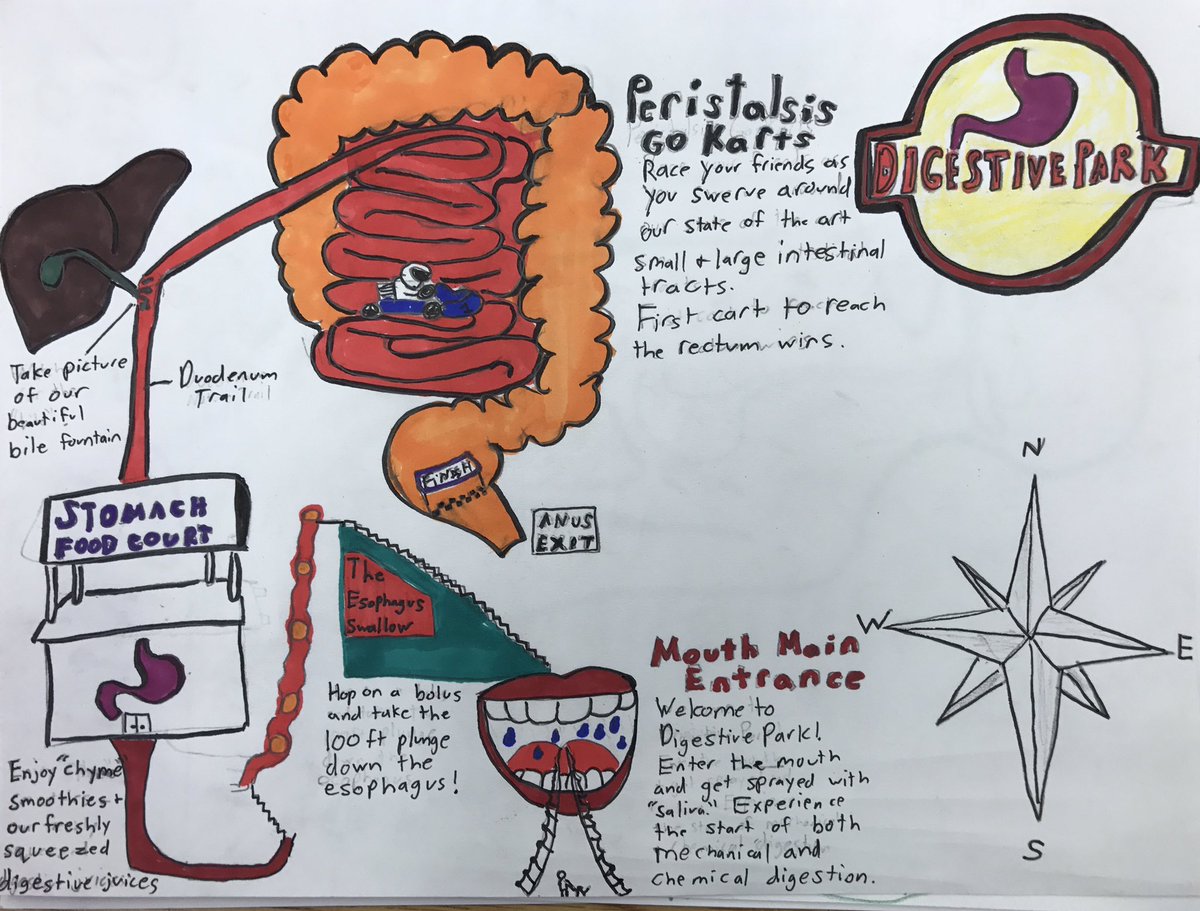 Peristalsis
Go Karts
Race your friends as
you swerve around
our state of the art
small + large intestinal
tracts.
First cart to reach
the rectum wins.
DIGESTIVE PARK
Take picture
of our
beautiful
bile fountain
Duodenum
Trail
STOMACH
FOOD COURT
FINISH
ANUS
EXIT
The
Esophagus
Swallow
Hop on a bolus
and take the
100 ft plunge
down the
esophagus!
Enjoy "chyme"
smoothies +
our freshly
squeezed
digestive juices
Mouth Main
Entrance
Welcome to
Digestive Park!
Enter the mouth
and get sprayed with
"saliva." Experience
the start of both
mechanical and
chemical digestion.
N
W
E
S